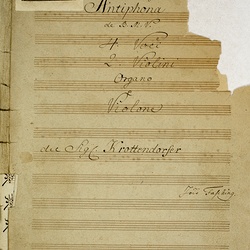 Antiphona
de B. M. V.
4 Voci
2 Violini
Organo
e
Violone
del Sigl. Krottendorfer